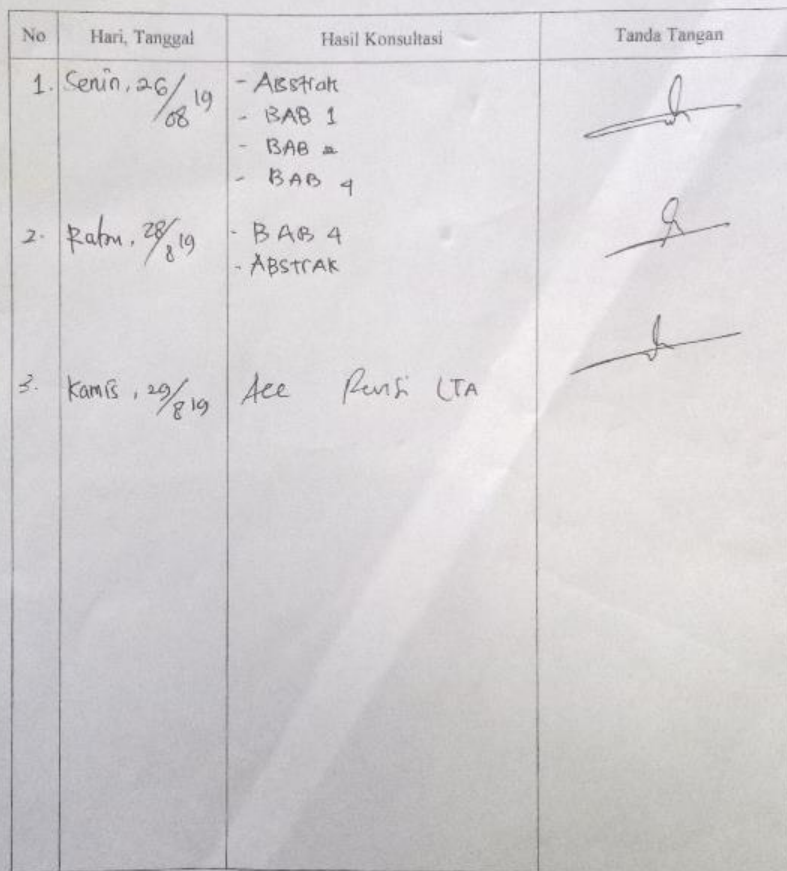 No Hari, Tanggal Hasil Konsultasi Tanda Tangan
1. Senin, 26/08 19 - Abstrak
- BAB 1
- BAB 2
- BAB 4
2. Rabu, 28/8 19 - BAB 4
- ABSTRAK
3. Kamis, 29/8 19 Acc Revisi LTA